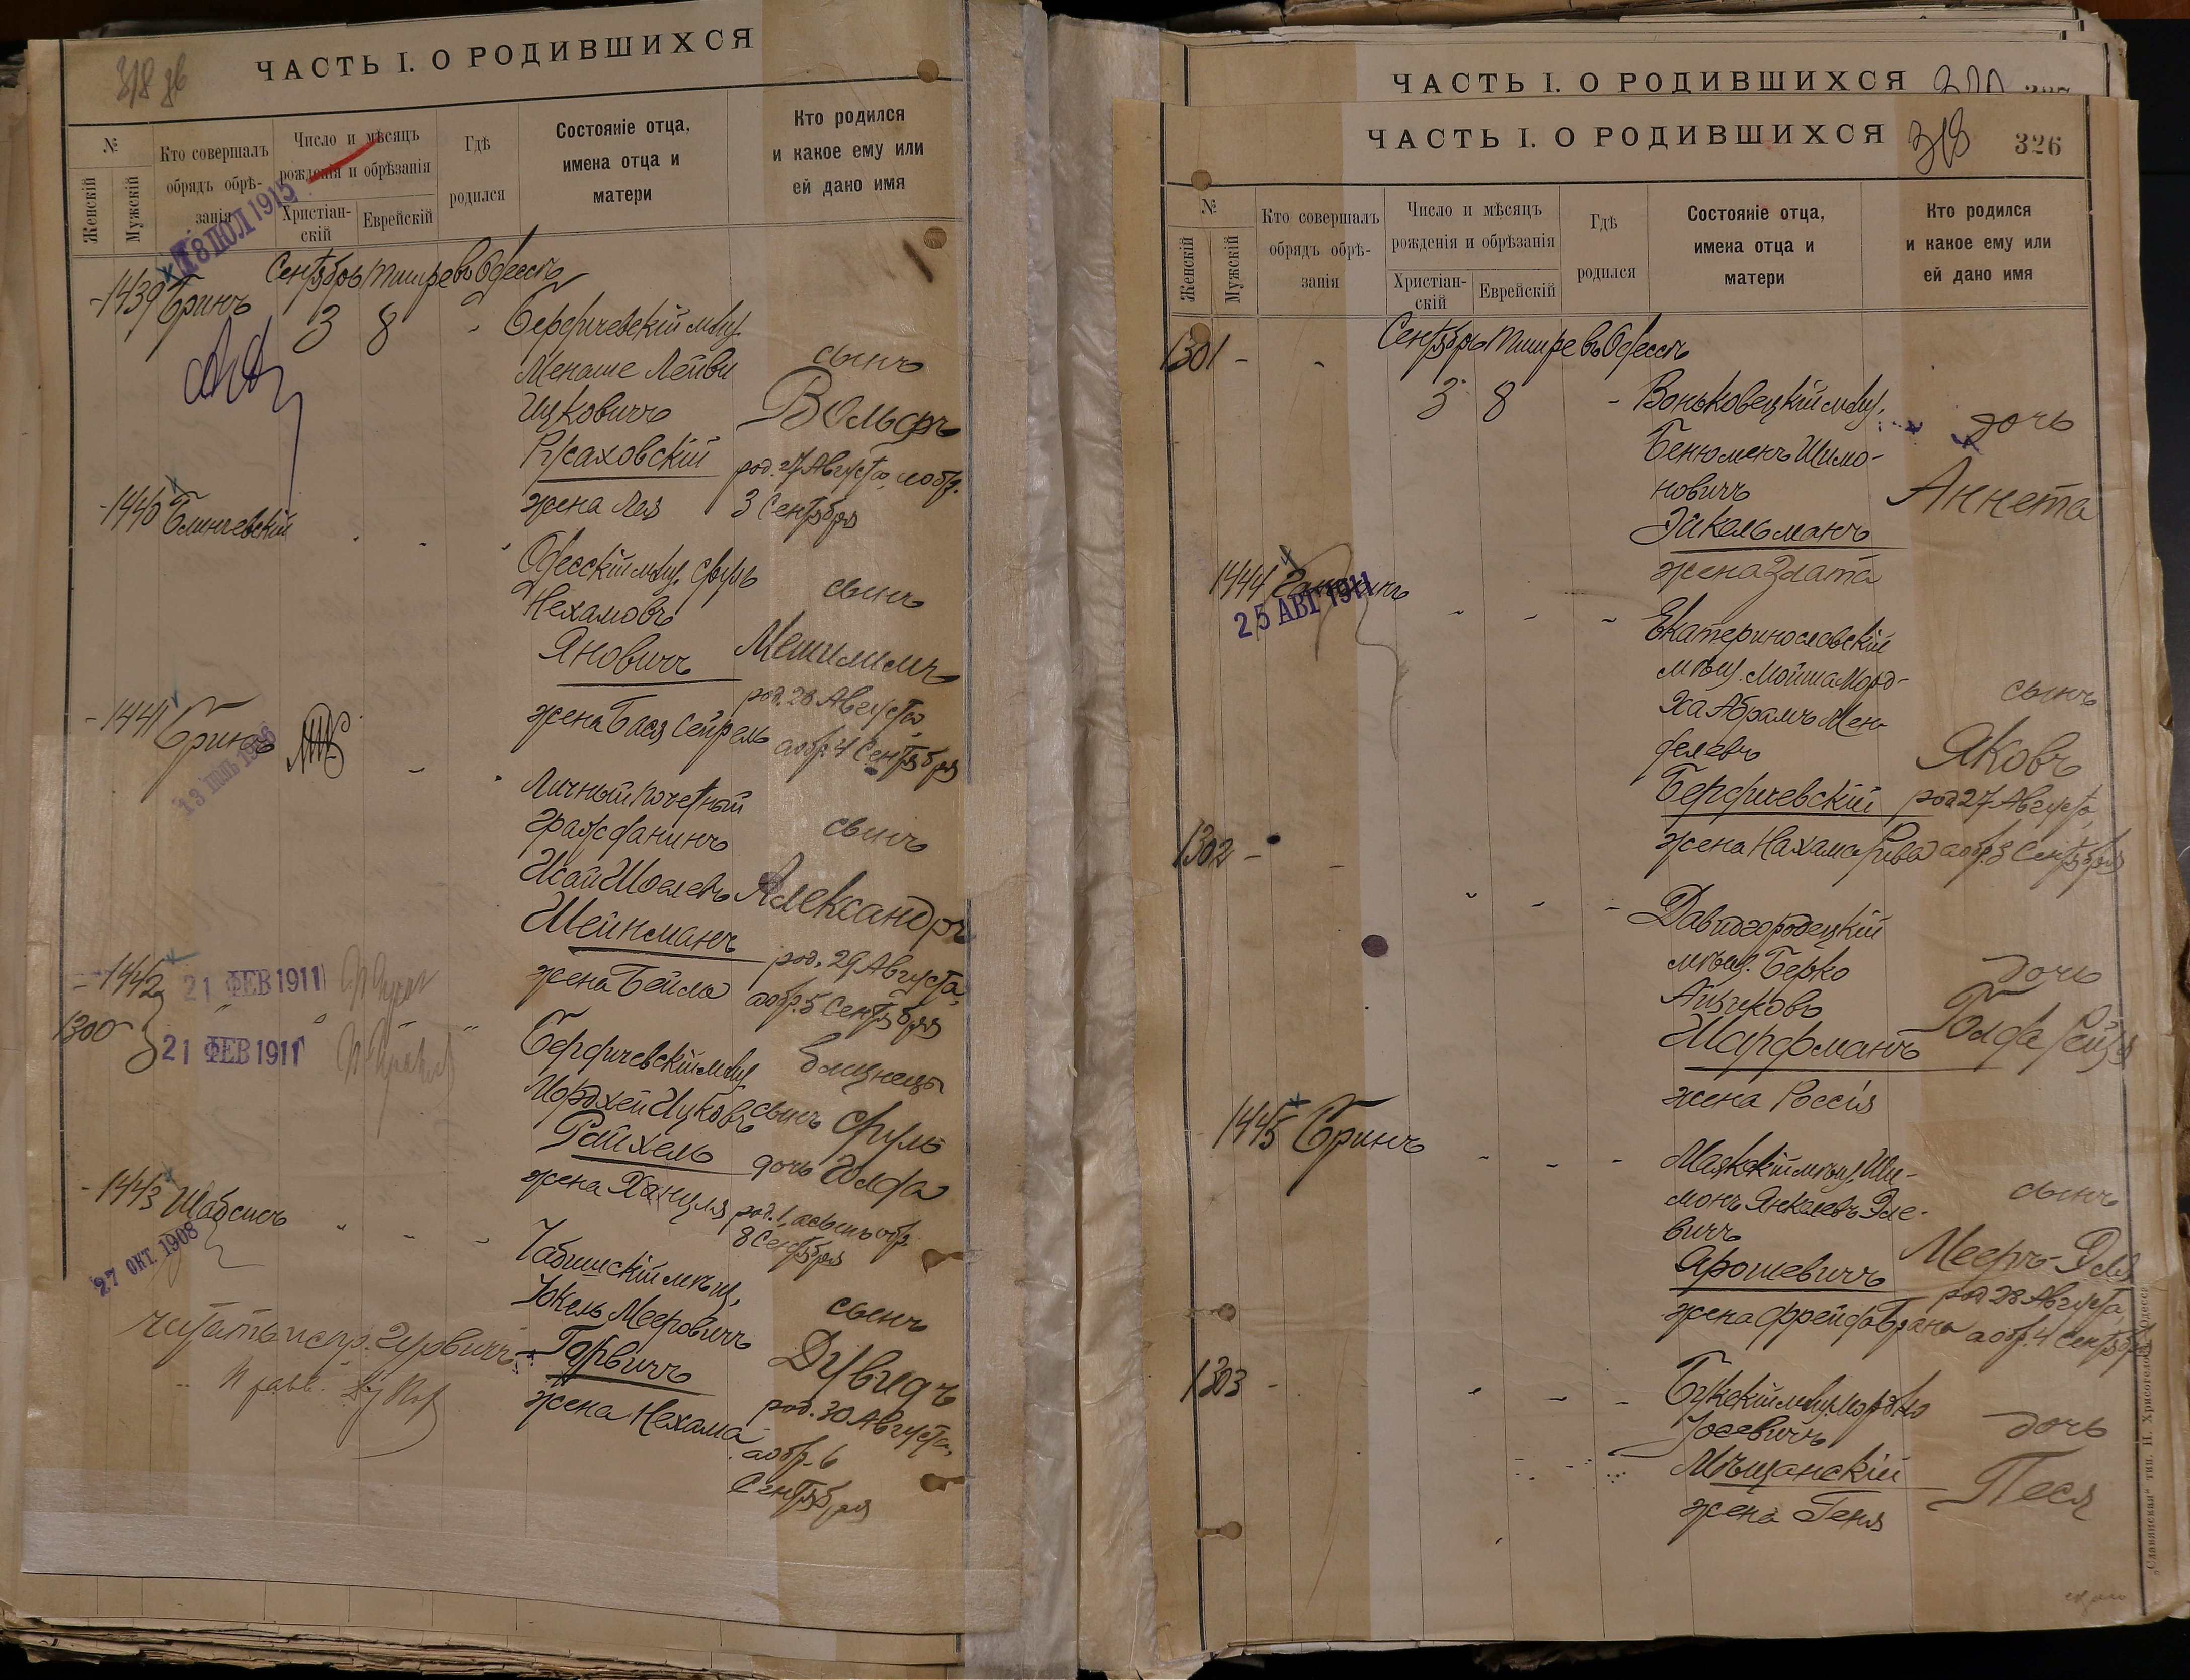 318 об
ЧАСТЬ I. О РОДИВШИХСЯ
№
Женскій
Мужскій
Кто совершалъ
обрядъ обрѣ-
занія
Число и мѣсяцъ
рожденія и обрѣзанія
Христіан-
скій
Еврейскій
Гдѣ
родился
Состояніе отца,
имена отца и
матери
Кто родился
и какое ему или
ей дано имя
18 ІЮЛ 1915
Сентябрь Тишре въ Одессѣ
-1439 Бринъ
3 8 Бердичевскій мѣщ.
Менаше Лейви
Ицковичъ
Ржаховскій
жена Лея
сынъ
Вольфъ
род. 27 Августа, а обр.
3 Сентября
-1440 Блинчевскій
Одесскій мѣщ. Сруль
Нехамовъ
Яновичъ
жена Бася Сейрель
сынъ
Мешилимъ
род. 28 Августа,
а обр. 4 Сентября
-1441 Бринъ
Личный почетный
гражданинъ
Исай Шоелевъ
Шейнманъ
жена Бейла
сынъ
Александръ
род. 29 Августа,
а обр. 5 Сентября
-1442
1300
21 ФЕВ 1911
21 ФЕВ 1911
Бердичевскій мѣщ.
Мордхей Ицковъ
Райхель
жена Ханця
близнецы
сынъ Сруль
дочь Голда
род. 1, а сынъ обр.
8 Сентября
-1443 Шабсисъ
27 ОКТ. 1908
Юкель Мееровичъ
Горвичъ
жена Нехама
сынъ
Дувидъ
род. 30 Августа,
а обр. 6
Сентября
читать испр. Гурвичъ
ЧАСТЬ I. О РОДИВШИХСЯ
ЧАСТЬ I. О РОДИВШИХСЯ
318
326
№
Женскій
Мужскій
Кто совершалъ
обрядъ обрѣ-
занія
Число и мѣсяцъ
рожденія и обрѣзанія
Христіан-
скій
Еврейскій
Гдѣ
родился
Состояніе отца,
имена отца и
матери
Кто родился
и какое ему или
ей дано имя
Сентябрь Тишре въ Одессѣ
1301 -
3 8 - Воньковецкій мѣщ.
Бенюменъ Шимо-
новичъ
Эйкельманъ
жена Злата
дочь
Аннета
1444
25 АВГ 1911
Екатеринославскій
мѣщ. Мойша Морд-
ха Абрамъ Мен-
делевъ
Бердичевскій
жена Нахама Рива
сынъ
Яковъ
род 27 Августа,
а обр. 3 Сентября
1302 -
Давидгородецкій
мѣщ. Берко
Айзиковъ
Шарфманъ
жена Россія
дочь
Голда Рейзя
1445 Бринъ
Маякскій мѣщ. Ши-
монъ Янкелевъ Эле-
вичъ
Ярошевичъ
жена Фрейда Брана
сынъ
Мееръ-Эля
род 28 Августа,
а обр. 4 Сентября
1303 -
Букскій мѣщ. Мордко
Іосевичъ
Мѣщанскій
жена Геня
дочь
Песя
„Славянская“ тип. Н. Хрисогелоса, Одесса